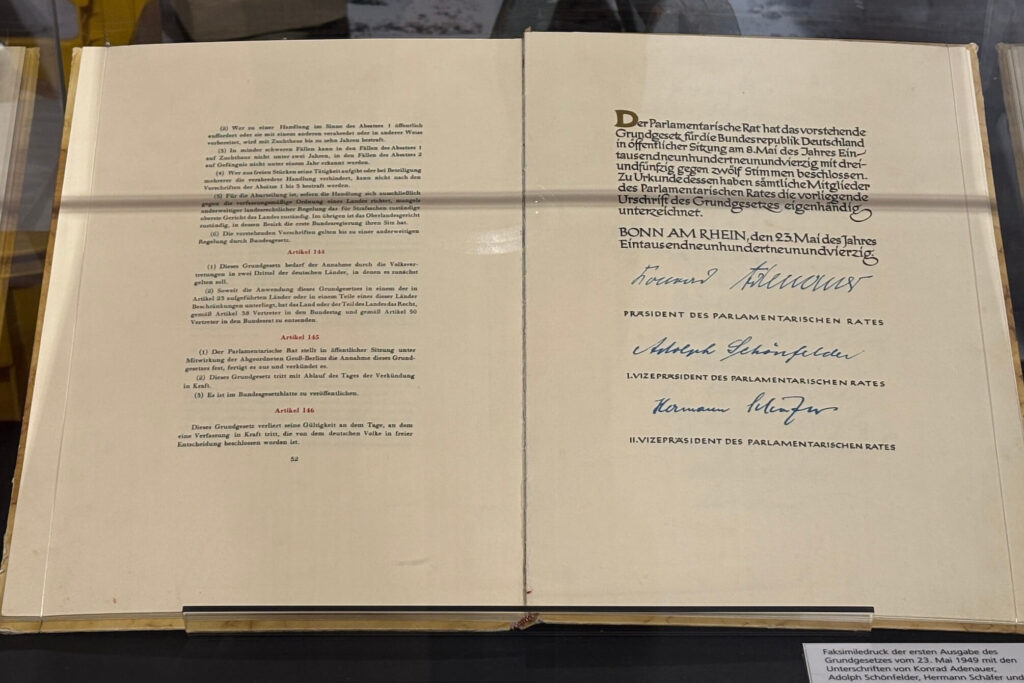 (2) Wer zu einer Handlung im Sinne des Absatzes 1 öffentlich
auffordert oder sie mit einem anderen verabredet oder in anderer Weise
vorbereitet, wird mit Zuchthaus bis zu zehn Jahren bestraft.
(3) In minder schweren Fällen kann in den Fällen des Absatzes 1
auf Zuchthaus nicht unter zwei Jahren, in den Fällen des Absatzes 2
auf Gefängnis nicht unter einem Jahr erkannt werden.
(4) Wer aus freien Stücken seine Tätigkeit aufgibt oder bei Beteiligung
mehrerer die verabredete Handlung verhindert, kann nicht nach den
Vorschriften der Absätze 1 bis 3 bestraft werden.
(5) Für die Aburteilung ist, sofern die Handlung sich ausschließlich
gegen die verfassungsmäßige Ordnung eines Landes richtet, mangels
anderweitiger landesrechtlicher Regelung das für Strafsachen zuständige
oberste Gericht des Landes zuständig. Im übrigen ist das Oberlandesgericht
zuständig, in dessen Bezirk die erste Bundesregierung ihren Sitz hat.
(6) Die vorstehenden Vorschriften gelten bis zu einer anderweitigen
Regelung durch Bundesgesetz.
Artikel 144
(1) Dieses Grundgesetz bedarf der Annahme durch die Volksver-
tretungen in zwei Drittel der deutschen Länder, in denen es zunächst
gelten soll.
(2) Soweit die Anwendung dieses Grundgesetzes in einem der in
Artikel 23 aufgeführten Länder oder in einem Teile eines dieser Länder
Beschränkungen unterliegt, hat das Land oder der Teil des Landes das Recht,
gemäß Artikel 38 Vertreter in den Bundestag und gemäß Artikel 50
Vertreter in den Bundesrat zu entsenden.
Artikel 145
(1) Der Parlamentarische Rat stellt in öffentlicher Sitzung unter
Mitwirkung der Abgeordneten Groß-Berlins die Annahme dieses Grund-
gesetzes fest, fertigt es aus und verkündet es.
(2) Dieses Grundgesetz tritt mit Ablauf des Tages der Verkündung
in Kraft.
(3) Es ist im Bundesgesetzblatte zu veröffentlichen.
Artikel 146
Dieses Grundgesetz verliert seine Gültigkeit an dem Tage, an dem
eine Verfassung in Kraft tritt, die von dem deutschen Volke in freier
Entscheidung beschlossen worden ist.
52
Der Parlamentarische Rat hat das vorstehende
Grundgesetz für die Bundesrepublik Deutschland
in öffentlicher Sitzung am 8. Mai des Jahres Ein-
tausendneunhundertneunundvierzig mit drei-
undfünfzig gegen zwölf Stimmen beschlossen.
Zu Urkunde dessen haben sämtliche Mitglieder
des Parlamentarischen Rates die vorliegende
Urschrift des Grundgesetzes eigenhändig
unterzeichnet.
BONN AM RHEIN, den 23. Mai des Jahres
Eintausendneunhundertneunundvierzig:
Konrad Adenauer
PRÄSIDENT DES PARLAMENTARISCHEN RATES
Adolph Schönfelder
I. VIZEPRÄSIDENT DES PARLAMENTARISCHEN RATES
Hermann Schäfer
II. VIZEPRÄSIDENT DES PARLAMENTARISCHEN RATES
Faksimiledruck der ersten Ausgabe des
Grundgesetzes vom 23. Mai 1949 mit den
Unterschriften von Konrad Adenauer,
Adolph Schönfelder, Hermann Schäfer und